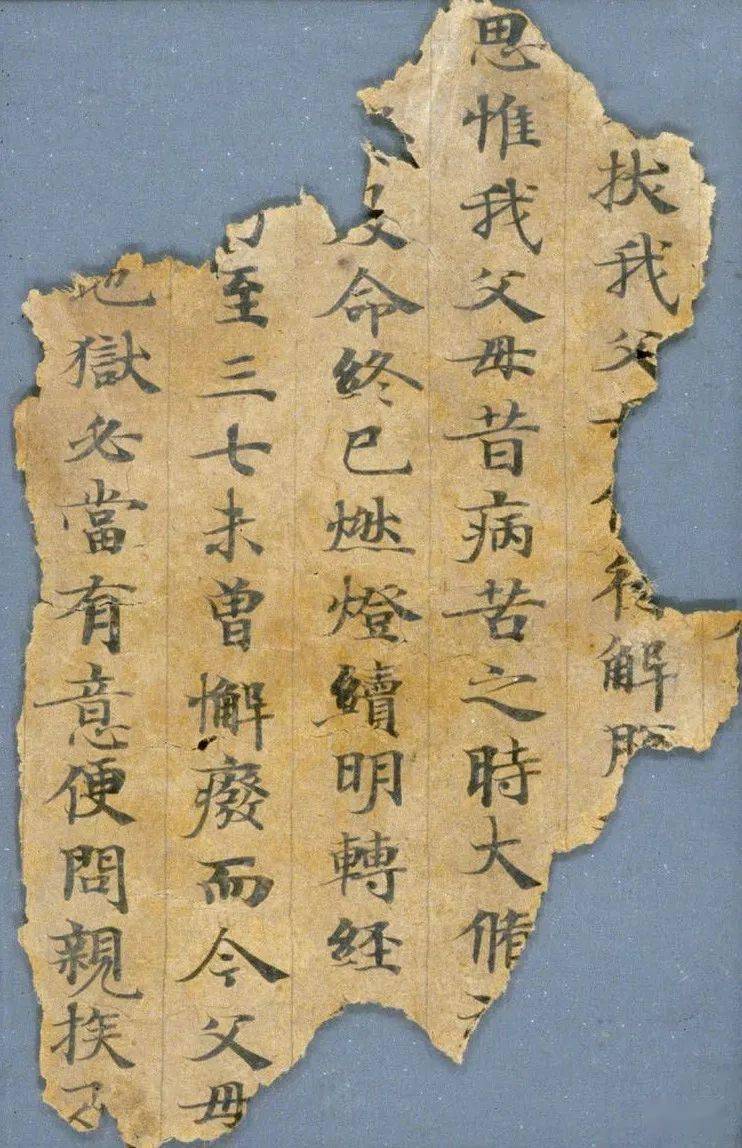 拔我父得解脫
思惟我父母昔病苦之時大脩
及命終已燃燈續明轉經
至三七未曾懈癈而今父母
地獄必當有意便問親族